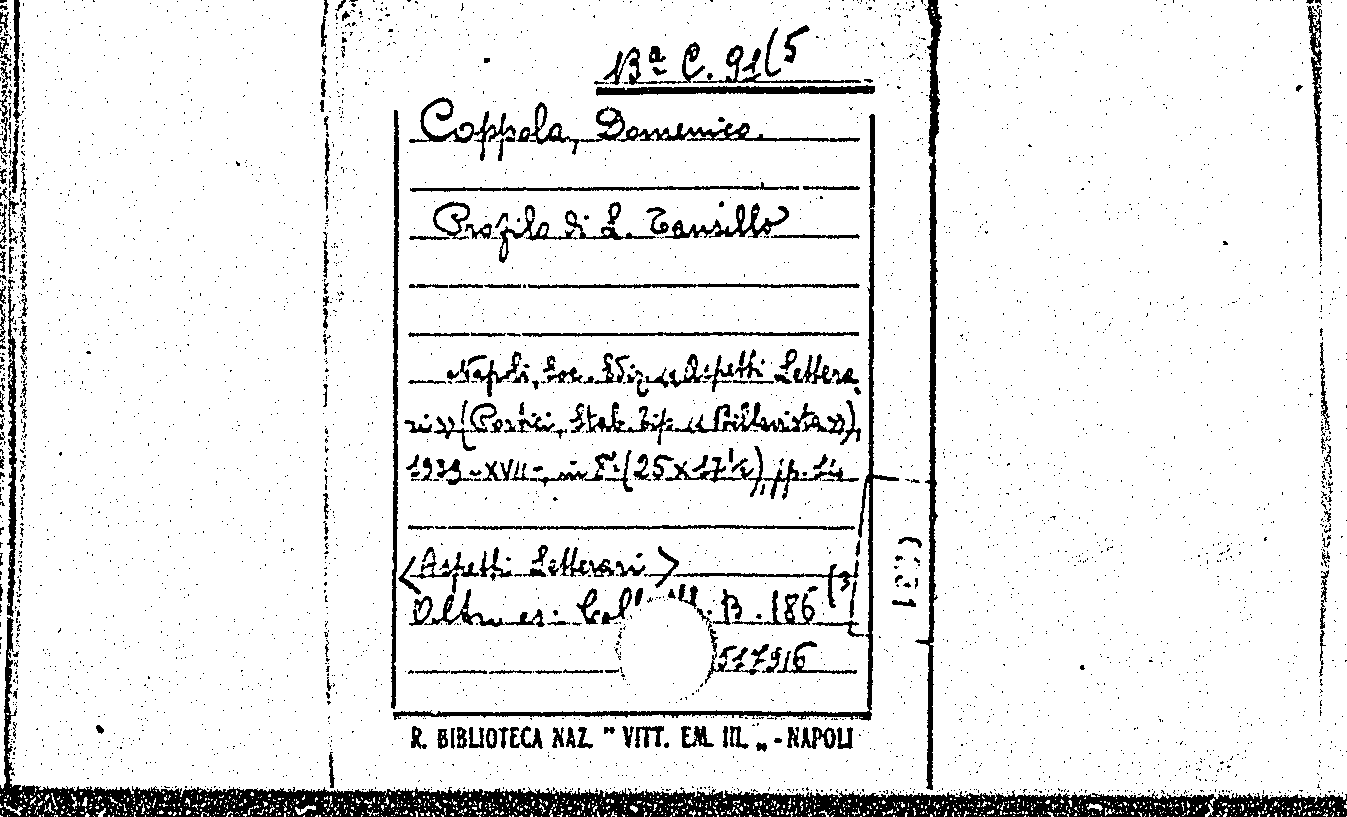 Bª C. 91(5
Coppola, Domenico.
Profilo di L. Tansillo
Napoli, Soc. Ediz. «Aspetti Lettera
ri» (Portici, Stab. Tip. «Bellavista»),
1939-XVII-, in 8º (25 x 17 ½), pp. 14
<Aspetti Letterari>
Altro es: B. 186 (3
517916
R. BIBLIOTECA NAZ. " VITT. EM. III. „ - NAPOLI